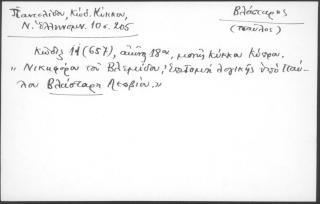 Παντελίδου, Κώδ. Κύκκου,
Ν. Ἑλληνομν. 10 σ. 205
Βλάσταρης
(Παῦλος)
Κώδιξ 11 (657), αἰῶνος 18ου, μονῆς Κύκκου Κύπρου.
"Νικηφόρου τοῦ Βλεμίδου, Ἐπιτομὴ λογικῆς ὑπὸ Παύ-
λου Βλάσταρη Λεσβίου."